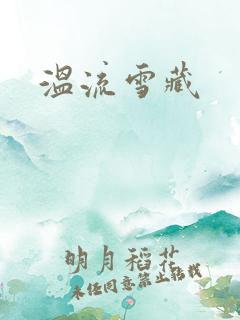 温流雪藏
明月稻花
未经同意禁止转载